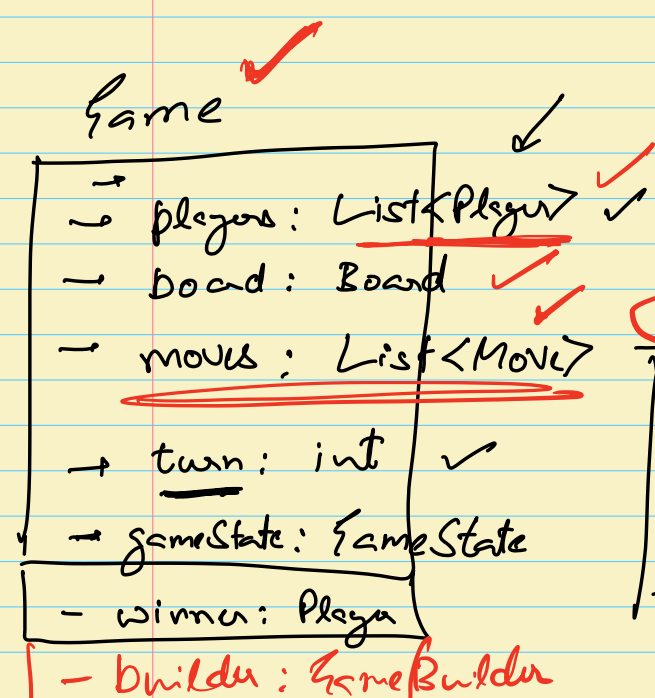 Game
- players: List<Player>
- board: Board
- moves: List<Move>
- turn: int
- gameState: GameState
- winner: Player
- builder: GameBuilder